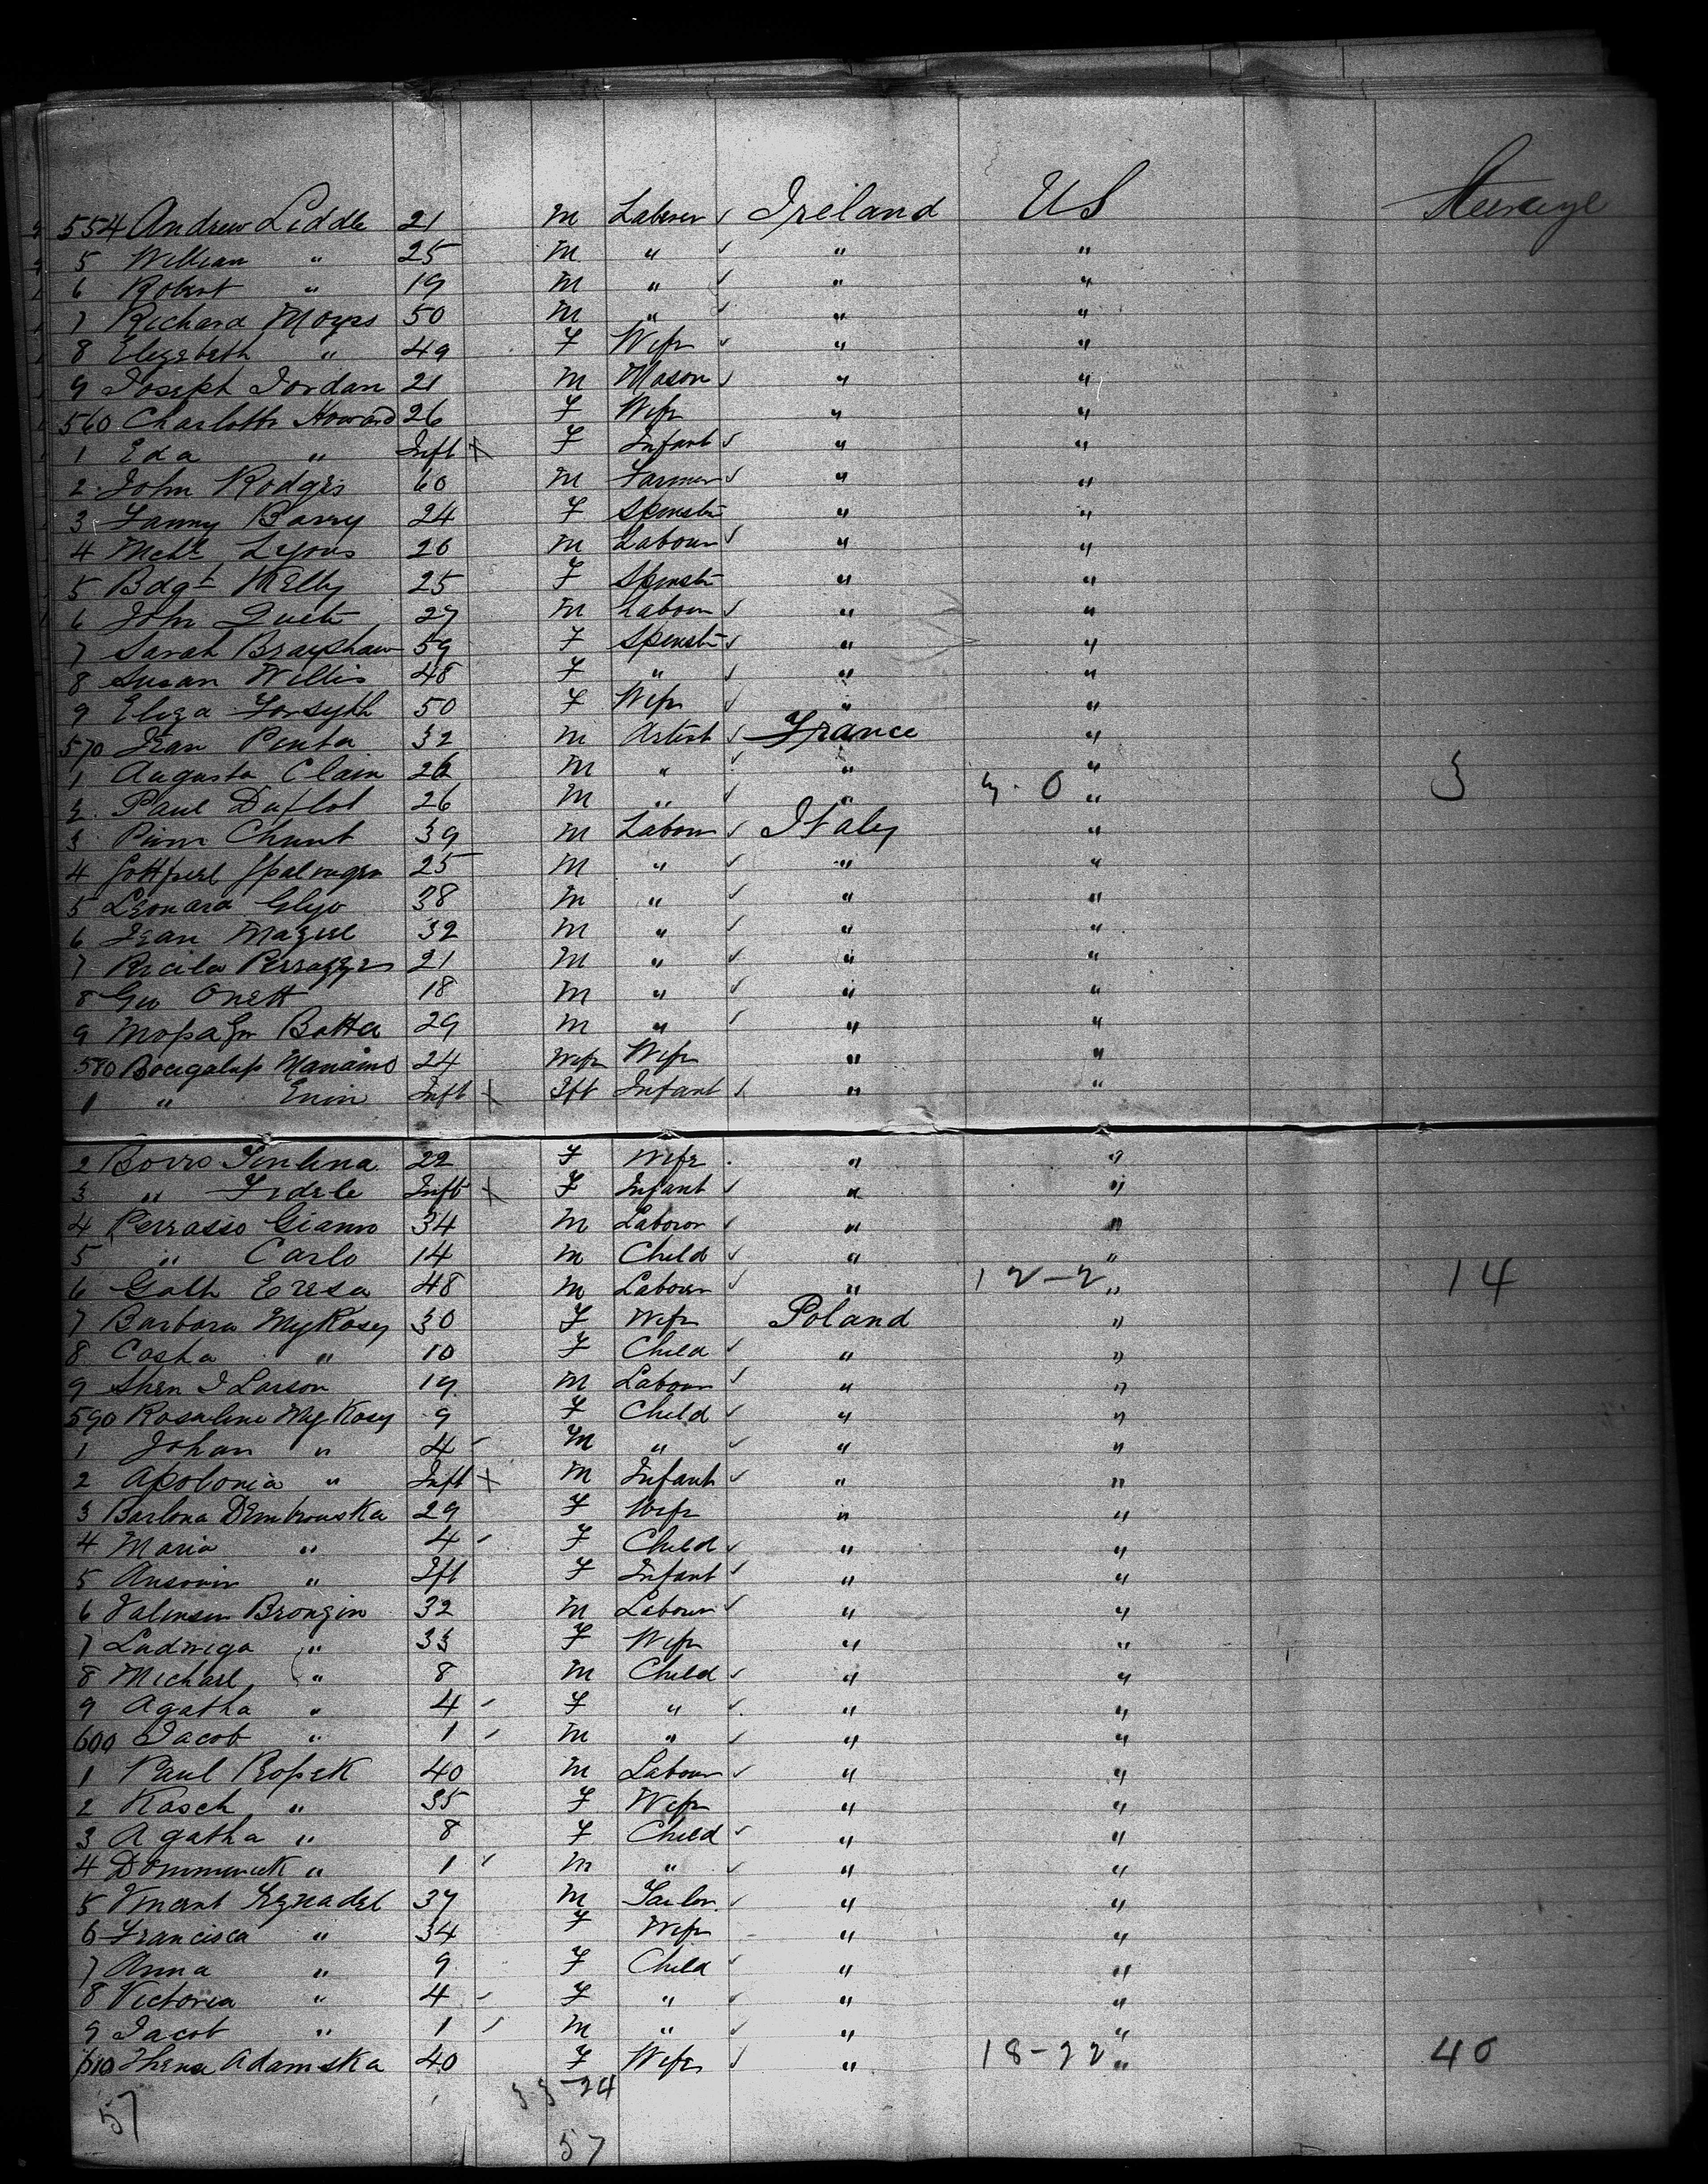 554 Andrew Liddle 21 M Laborer ✓ Ireland US Steerage
5 William " 25 M " ✓ " "
6 Robert " 19 M " ✓ " "
7 Richard Moyes 50 M " ✓ " "
8 Elizabeth " 49 F Wife ✓ " "
9 Joseph Jordan 21 M Mason ✓ " "
560 Charlotte Howard 26 F Wife " "
1 Eda " Inft X F Infant ✓ " "
2 John Rodgers 60 M Farmer ✓ " "
3 Fanny Barry 24 F Spinstr " "
4 Mchl Lyons 26 M Labour ✓ " "
5 Bdgt Kelly 25 F Spinstr " "
6 John 27 M Labour ✓ " "
7 Sarah Brayshaw 59 F Spinstr ✓ " "
8 Susan Willis 48 F " ✓ " "
9 Eliza Forsyth 50 F Wife ✓ " "
570 Jean Penta 32 M Artist ✓ France "
1 Augusta Clain 26 M " ✓ " "
2 Paul Duflot 26 M " ✓ " 3. 0 " 3
3 Chunt 39 M Labour ✓ Italy "
4 25 M " ✓ " "
5 Leonard Glyo 38 M " ✓ " "
6 Jean Mazere 32 M " ✓ " "
7 21 M " ✓ " "
8 Geo Onett 18 M " ✓ " "
9 Botta 29 M " ✓ " "
580 24 Wife Wife " "
1 " Enin Inft X Ift Infant ✓ "
2 Borro 22 F Wife " "
3 " Fedele Inft X F Infant ✓ " "
4 Perrasso Gianno 34 M Laboror ✓ " "
5 " Carlo 14 M Child ✓ " "
6 Goth Eresa 48 M Labour ✓ " 12-2 " 14
7 Barbara MyKosy 30 F Wife Poland "
8 Casha " 10 F Child ✓ " "
9 Shen I Larson 19 M Labour ✓ " "
590 Rosalene MyKosy 9 F Child ✓ " "
1 Johan " 4 M " ✓ " "
2 Apolonia " Inft X M Infant ✓ " "
3 Barlona Dembrowska 29 F Wife " "
4 Maria " 4 F Child ✓ " "
5 " Ift F Infant ✓ " "
6 Brongin 32 M Labour ✓ " "
7 Ludwiga " 33 F Wife " "
8 Michael " 8 M Child ✓ " "
9 Agatha " 4 F " ✓ " "
600 Jacob " 1 M " ✓ " "
1 Paul Ropek 40 M Labour ✓ " "
2 Kasch " 35 F Wife " "
3 Agatha " 8 F Child ✓ " "
4 Dommnick " 1 M " ✓ " "
5 37 M Tailor ✓ " "
6 Francisca " 34 F Wife " "
7 Anna " 9 F Child ✓ " "
8 Victoria " 4 F " ✓ " "
9 Jacob " 1 M " ✓ " "
610 Adamska 40 F Wife ✓ " 18-22 " 40
33-24
57 57